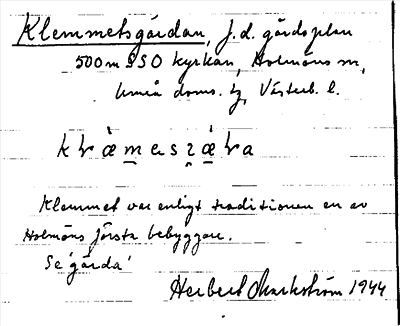 Klemmetsgårdan, f.d. gårdsplan
500 m SSO kyrkan, Holmöns sn,
Umeå doms. tg, Västerb. l.
Klemmet var enligt traditionen en av
Holmöns första bebyggare.
Se 'gårda'
Herbert Markström 1944